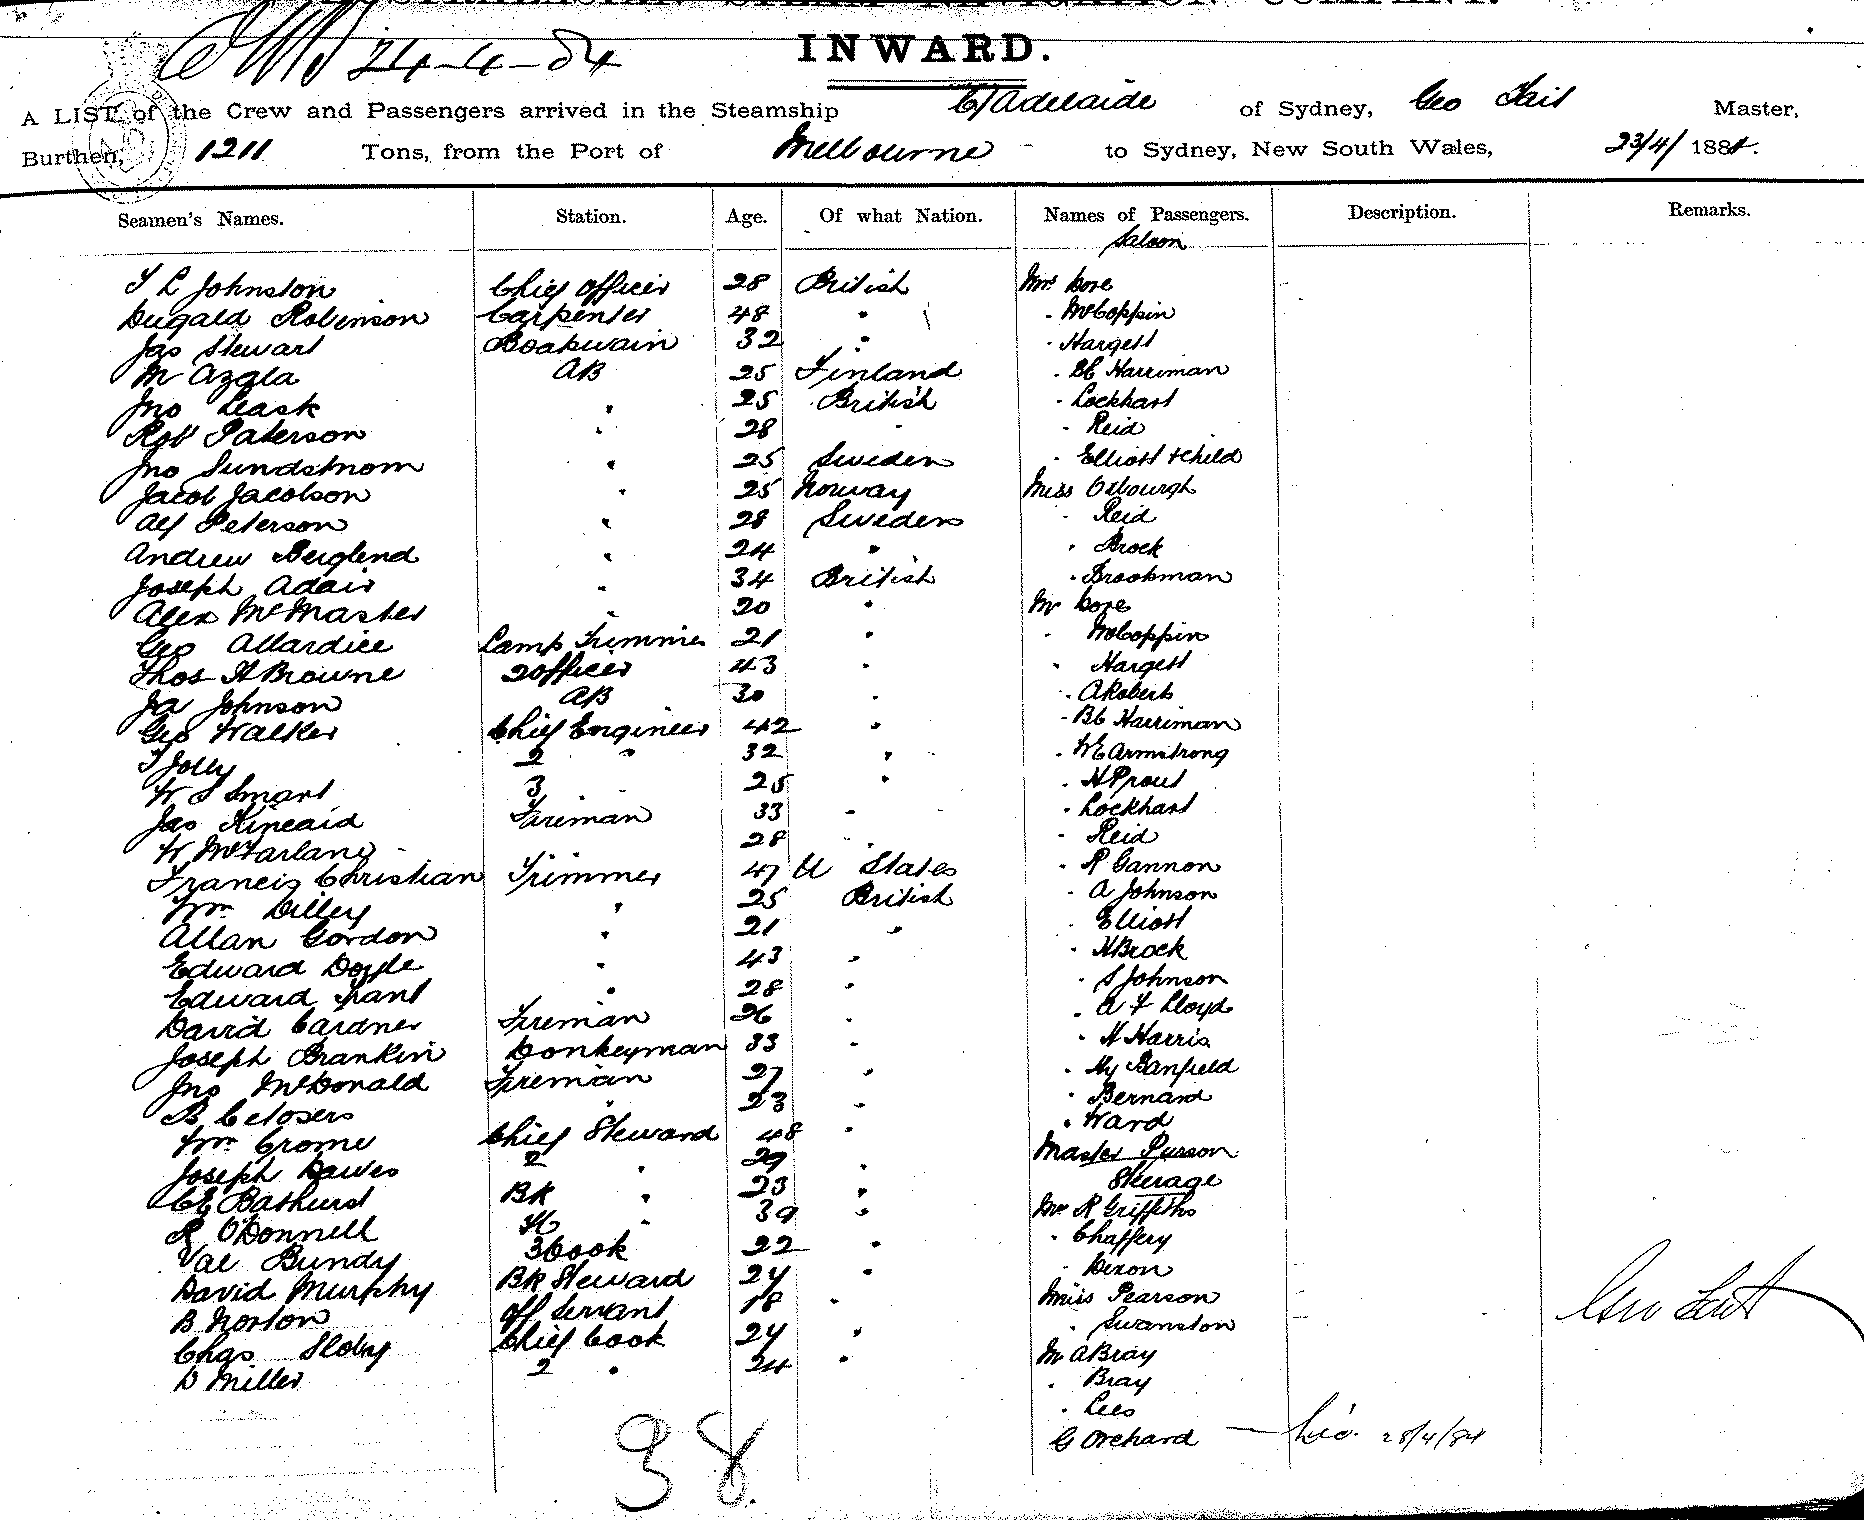 AUSTRALASIAN STEAM NAVIGATION COMPANY.
24-4-84
INWARD.
A LIST of the Crew and Passengers arrived in the Steamship C/Adelaide of Sydney, Geo Tait Master,
Burthen, 1211 Tons, from the Port of Melbourne to Sydney, New South Wales, 23/4/1884.
Seamen's Names. Station. Age. Of what Nation. Names of Passengers. Description. Remarks.
Saloon
T L Johnston Chief Officer 28 British Mrs Gore
Dugald Robinson Carpenter 48 " " McCoppin
Jas Stewart Boatswain 32 " " Hargett
M Azgla AB 25 Finland " BC Harriman
Jno Leask " 25 British " Lockhart
Robt Paterson " 28 " " Reid
Jno Sundstrom " 25 Sweden " Elliott & child
Jacob Jacobson " 25 Norway Miss Oxbourgh
Alf Peterson " 28 Sweden " Reid
Andrew Berglend " 24 " " Brock
Joseph Adair " 34 British " Brookman
Alex McMaster " 20 " Mr Gore
Geo Allardice Lamp Trimmer 21 " " McCoppin
Thos H Browne 2 Officer 43 " " Hargett
Ja Johnson AB 30 " " A Roberts
Geo Walker Chief Engineer 42 " " BC Harriman
T Jolly 2 " 32 " " WE Armstrong
W S Smart 3 25 " " H Prout
Jas Kincaid Fireman 33 " " Lockhart
W McFarlane 28 " " Reid
Francis Christian Trimmer 47 U States " R Gannon
Wm Dilley " 25 British " A Johnson
Allan Gordon " 21 " " Elliott
Edward Doyle " 43 " " H Brock
Edward Grant " 28 " " S Johnson
David Cardner Fireman 26 " " A F Lloyd
Joseph Brankin Donkeyman 33 " " H Harris
Jno McDonald Fireman 27 " " Hy Banfield
B Celosers " 23 " " Bernard
Wm Crome Chief Steward 48 " " Ward
Joseph Dawes 2 " 29 " Master Purson
CE Bathurst BK " 23 " Steerage
R O'Donnell St " 39 " Mr R Griffiths
Val Bundy 3 Cook 22 " " Chaffery
David Murphy BK Steward 24 " " Dixon
B Norton Off Servant 18 " Miss Pearson
Chas Sloby Chief Cook 24 " " Swanston
D Miller 2 " 24 " Mr A Bray
" Bray
" Lees
G Orchard
28/4/84
38
Geo Tait